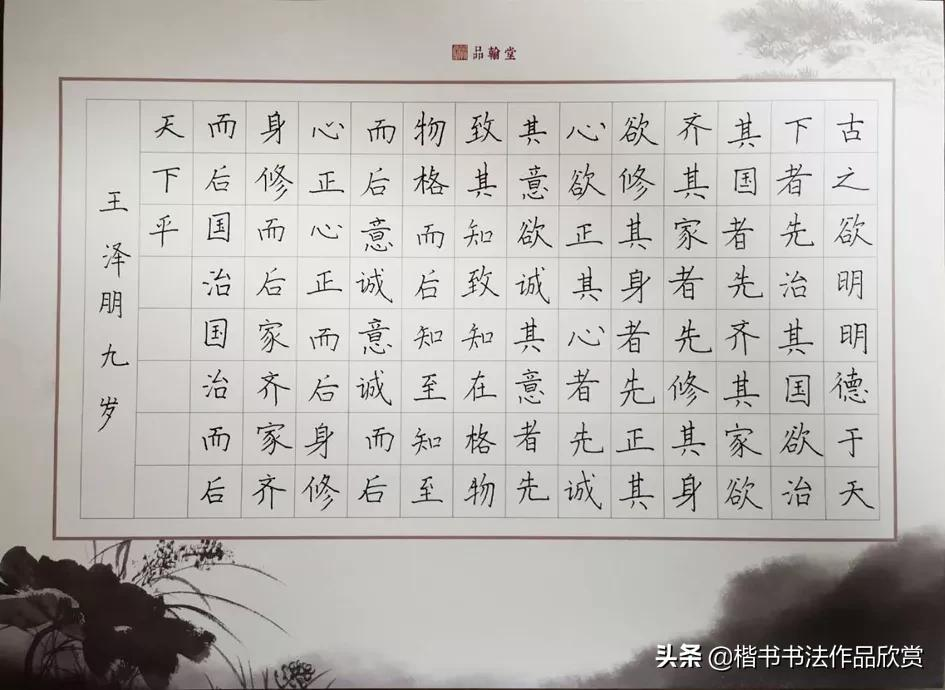 品翰堂
古之欲明明德于天
下者先治其国欲治
其国者先齐其家欲
齐其家者先修其身
欲修其身者先正其
心欲正其心者先诚
其意欲诚其意者先
致其知致知在格物
物格而后知至知至
而后意诚意诚而后
心正心正而后身修
身修而后家齐家齐
而后国治国治而后
天下平
王泽朋九岁
头条 @楷书书法作品欣赏